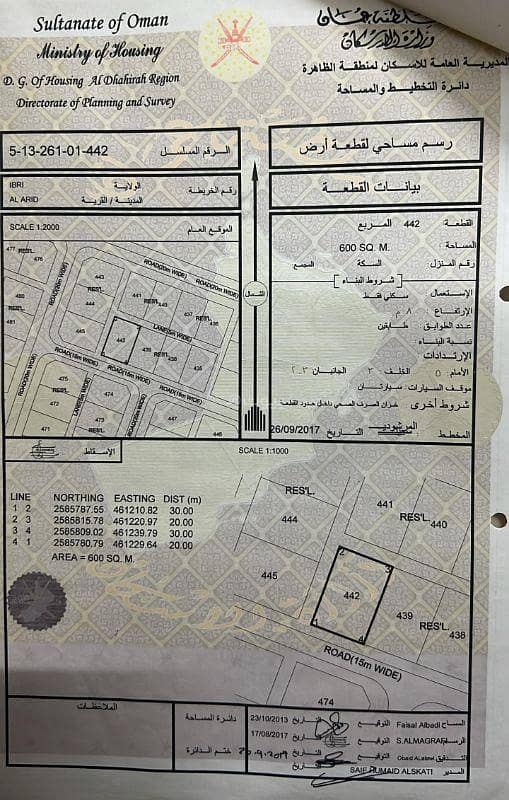 Sultanate of Oman
Ministry of Housing
D. G. Of Housing Al Dhahirah Region
Directorate of Planning and Survey
سلطنة عمان
وزارة الإسكان
المديرية العامة للاسكان لمنطقة الظاهرة
دائرة التخطيط والمساحة
5-13-261-01-442
الرقم المسلسل
رسم مساحي لقطعة أرض
IBRI
AL ARID
الولاية
المدينة / القرية
رقم الخريطة
بيانات القطعة
SCALE 1:2000
الموقع العام
الشمال
القطعة: 442 المربع
المساحة: 600 SQ. M.
رقم المنزل: السكة المجمع
شروط البناء
الإستعمال: سكني فقط
الإرتفاع: ٨ م
عدد الطوابق: طابقين
نسبة البناء
الإرتدادات
الأمام: ٥ الخلف ٣ الجانبان
موقف السيارات: سيارتان
شروط أخرى: خزان الصرف الصحي داخل حدود القطعة
المخطط: التاريخ 26/09/2017
477 RES'L.
476
480
481
ROAD(20m WIDE)
ROAD(20m WIDE)
443
441
RES'L.
444
440
437
RES'L.
436
445
442
LANE(5m WIDE)
439
438
435
ROAD(15m WIDE)
ROAD(15m WIDE)
475
474
RES'L.
472
473
471
RES'L.
447
446
الإسقاط
SCALE 1:1000
LINE NORTHING EASTING DIST (m)
1 2 2585787.55 461210.82 30.00
2 3 2585815.78 461220.97 20.00
3 4 2585809.02 461239.79 30.00
4 1 2585780.79 461229.64 20.00
AREA = 600 SQ. M.
RES'L.
444
441
RES'L.
440
445
2
3
442
1
4
439
RES'L.
438
ROAD(15m WIDE)
474
الملاحظات
دائرة المساحة
ختم الدائرة
23/10/2013 التاريخ التوقيع Faisal Albadi المساح
17/08/2017 التاريخ التوقيع S.ALMAGRAFI الرسام
التاريخ التوقيع Obaid التدقيق
التاريخ SAIF HUMAID ALSKATI المدير